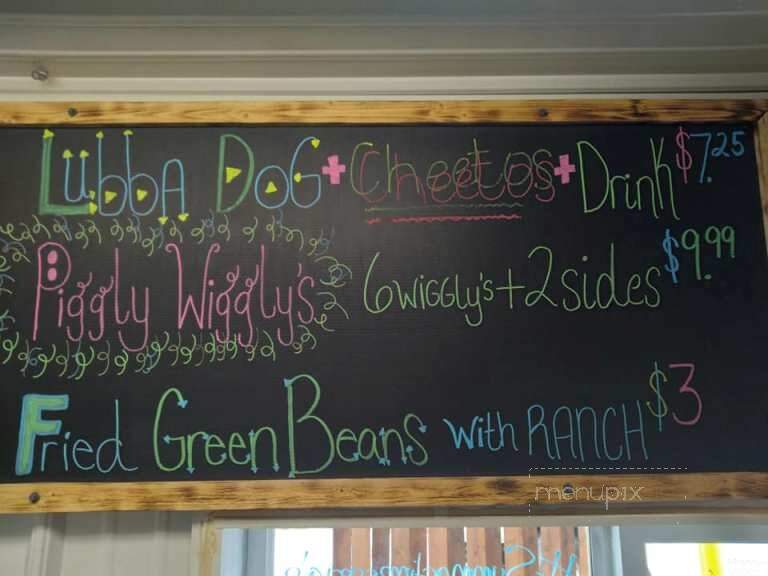 Lubba Dog + Cheetos + Drink $7.25
Piggly Wiggly's 6 wiggly's + 2 sides $9.99
Fried Green Beans with RANCH $3
menupix